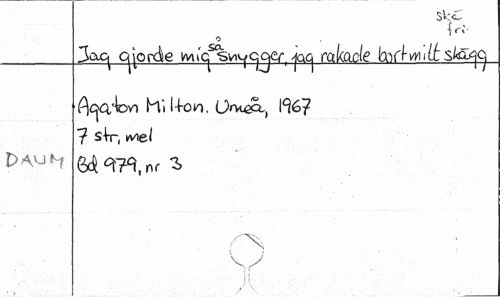 skä
fri
Jag gjorde mig så snygger, jag rakade bort mitt skägg
Agaton Milton. Umeå, 1967
7 str, mel
DAUM Bd 979, nr 3